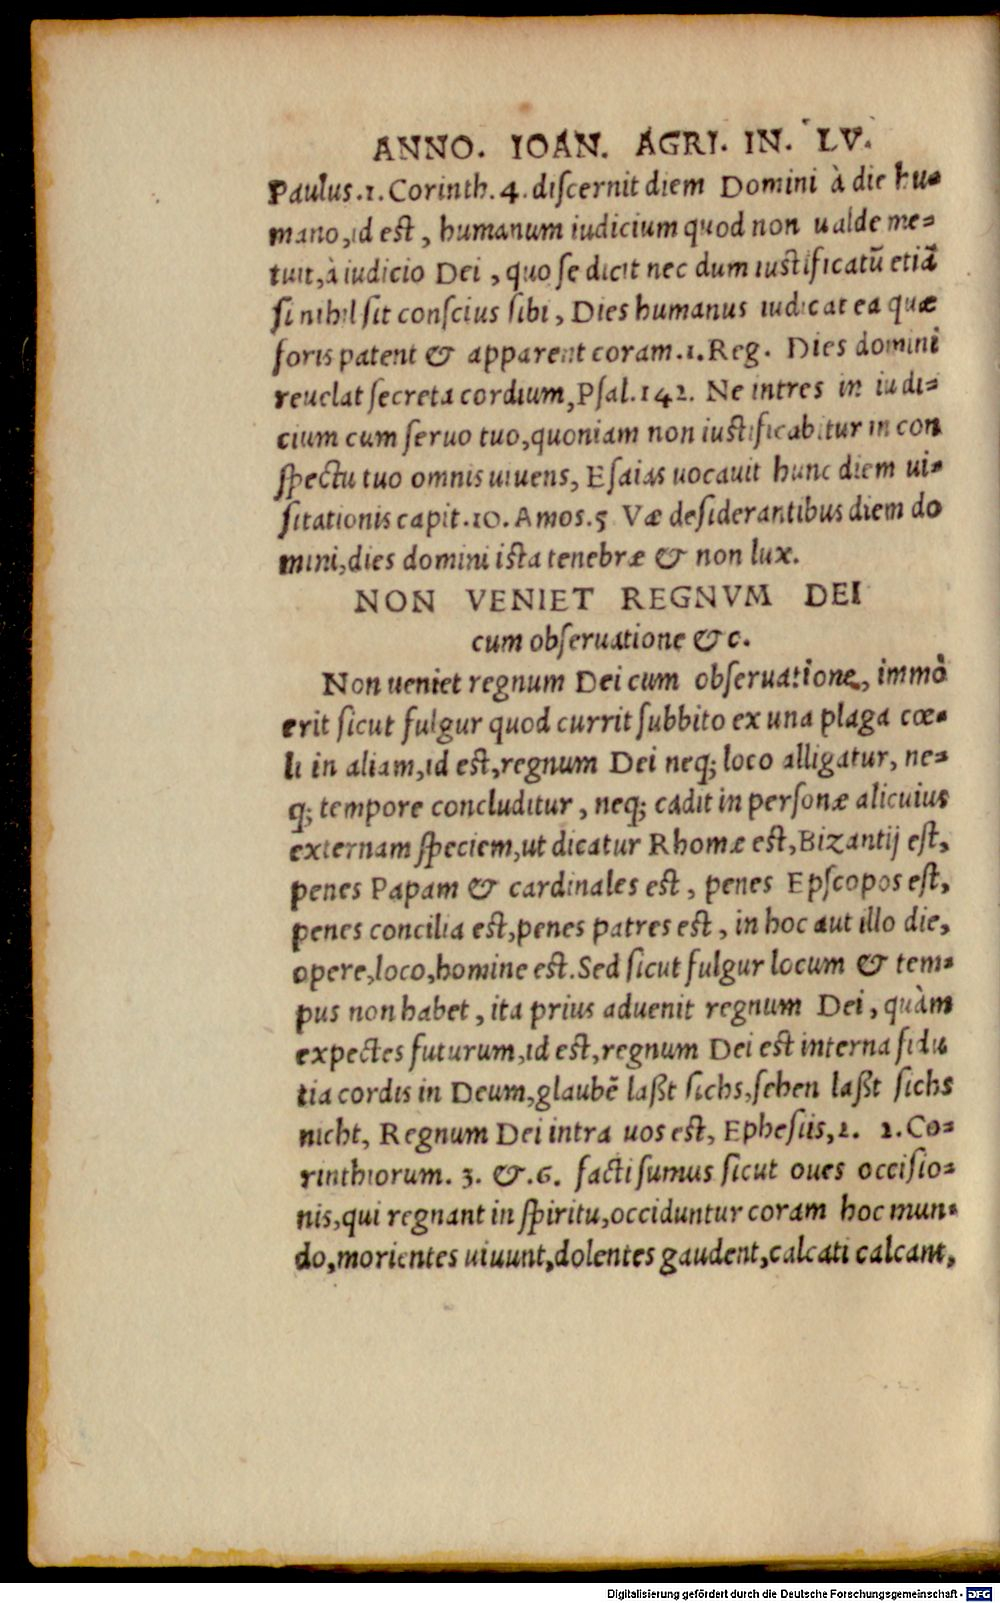 ANNO. IOAN. AGRI. IN. LV.
Paulus.1.Corinth.4.discernit diem Domini à die hu-
mano,id est, humanum iudicium quod non ualde me-
tuit,à iudicio Dei, quo se dicit nec dum iustificatũ etiã
si nihil sit conscius sibi, Dies humanus iudicat ea quæ
foris patent & apparent coram.1.Reg. Dies domini
reuelat secreta cordium,Psal.142. Ne intres in iudi-
cium cum seruo tuo,quoniam non iustificabitur in con
spectu tuo omnis uiuens, Esaias uocauit hunc diem ui-
sitationis capit.10. Amos.5 Væ desiderantibus diem do
mini,dies domini ista tenebræ & non lux.
NON VENIET REGNVM DEI
cum obseruatione &c.
Non ueniet regnum Dei cum obseruatione, immò
erit sicut fulgur quod currit subbito ex una plaga cœ-
li in aliam,id est,regnum Dei neq; loco alligatur, ne-
q; tempore concluditur, neq; cadit in personæ alicuius
externam speciem,ut dicatur Rhomæ est,Bizantij est,
penes Papam & cardinales est, penes Epscopos est,
penes concilia est,penes patres est, in hoc aut illo die,
opere,loco,homine est.Sed sicut fulgur locum & tem-
pus non habet, ita prius aduenit regnum Dei, quàm
expectes futurum,id est,regnum Dei est interna fidu
tia cordis in Deum,glaubẽ laßt sichs,sehen laßt sichs
nicht, Regnum Dei intra uos est, Ephesiis,2. 2.Co-
rinthiorum. 3. &.6. facti sumus sicut oues occisio-
nis,qui regnant in spiritu,occiduntur coram hoc mun-
do,morientes uiuunt,dolentes gaudent,calcati calcant,
Digitalisierung gefördert durch die Deutsche Forschungsgemeinschaft - DFG